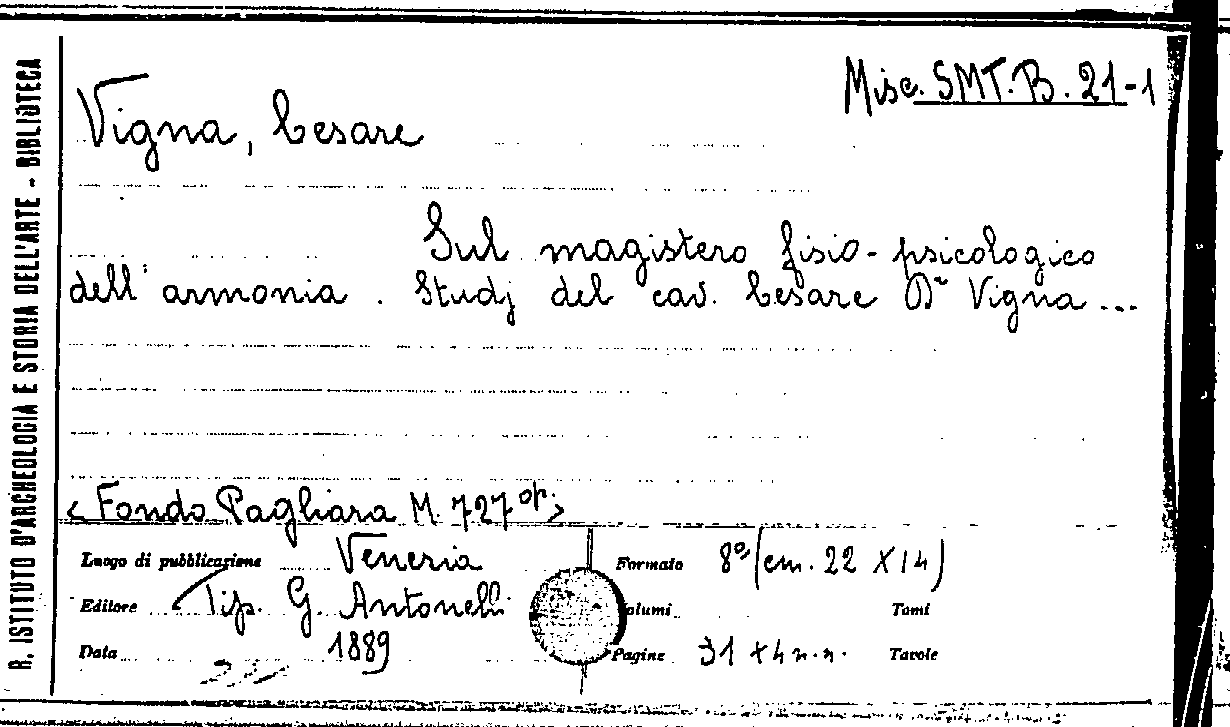 R. ISTITUTO D'ARCHEOLOGIA E STORIA DELL'ARTE - BIBLIOTECA
Misc. SMT. B. 21-1
Vigna, Cesare
Sul magistero fisio-psicologico
dell'armonia. Studj del cav. Cesare Dr Vigna...
<Fondo Pagliara M. 727 op>
Luogo di pubblicazione Venezia Formato 8º (cm. 22 X 14)
Editore Tip. G. Antonelli olumi Tomi
Data 1889 Pagine 31 + 4 n.n. Tavole